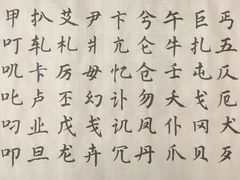 甲 扒 艾 尹 卞 兮 午 巨 丐
叮 轧 札 爿 亢 仑 牛 戋 五
叽 卡 厉 毋 忆 仓 壬 屯 戈
叱 卢 丕 幻 讣 勿 夭 戈 厄
叼 业 戊 戋 讥 凤 仆 冈 犬
叩 旦 龙 卉 冗 丹 爪 贝 歹